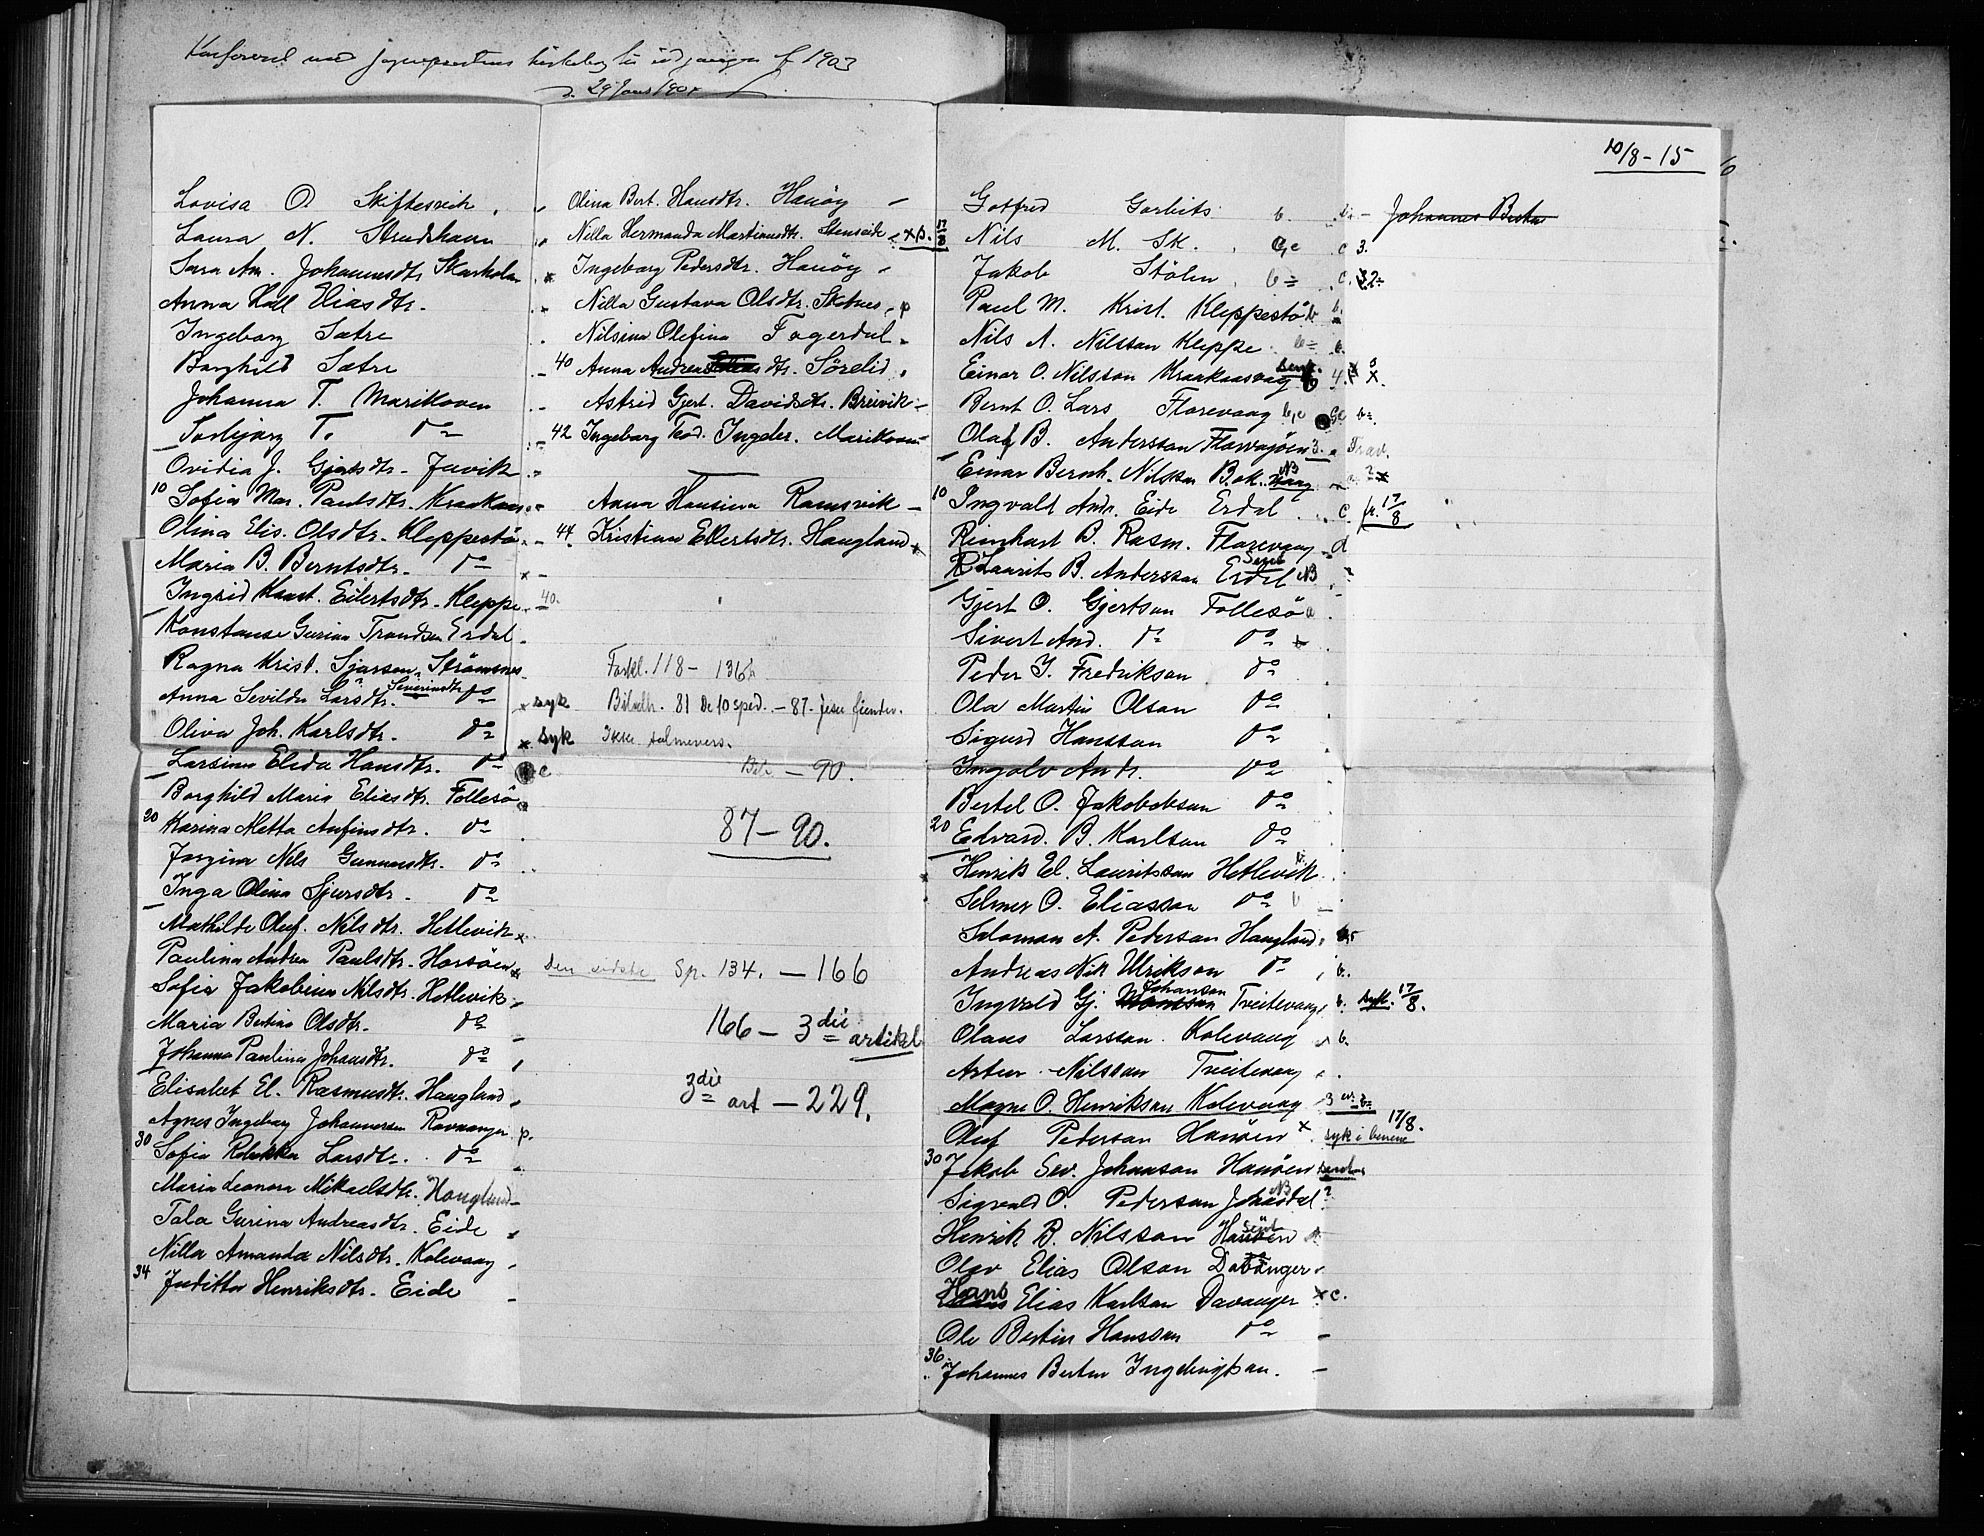 Konfereret med sogneprestens kirkebog til udgangen af 1903
d. 29 Janr 1904
10/8 - 15
Lovisa O. Skiftesvik
Laura N. Strudshavn
Sara An. Johannesdtr Skarholm
Anna Hall Eliasdtr.
Ingeborg Sætre
Borghild Sætre
Johanna T. Marikoven
Torbjørg T. do
Ovidia J. Gjertsdtr. Juvik
10 Sofia Mar. Paulsdtr. Kraakaas
Olina Elis. Olsdtr. Kleppestö
Maria B. Berntsdtr. do
Ingrid Konst. Eilertsdtr. Kleppe
Konstanse Gurina Trondsen Erdal
Ragna Krist. Sjursen Strömsnes
Anna Sevilda Larsdtr. Severinsdtr do
Oliva Joh. Karlsdtr. do
Larsina Elida Hansdtr. do
Borghild Maria Eliasdtr. Follesö
20 Karina Metta Anfinsdtr. do
Jorgina Nils Gunnarsdtr. do
Inga Olina Sjursdtr. do
Mathilde Oluf. Nilsdtr. Hetlevik x
Paulina Andrea Paulsdtr. Horsöen x
Sofia Jakobina Nilsdtr. Hetlevik
Maria Bertina Olsdtr. do
Johanna Paulina Johansdtr. do
Elisabet El. Rasmusdtr. Haugland
Agnes Ingeborg Johannesen Ravnanger p.
30 Sofia Rebekka Larsdtr. do
Maria Leonora Mikaelsdtr. Haugland
Tala Gurina Andreasdtr. Eide
Nilla Amanda Nilsdtr. Kolevaag
34 Juditta Henriksdtr. Eide
Olina Bert. Hansdtr. Hanöy
Nilla Hermanda Martinusdtr. Stenseide x p. 17/8
x Ingeborg Pedersdtr. Hanöy
Nilla Gustava Olsdtr. Skitnes p
Nilsina Olefina Fagerdal
40 Anna Andreasdtr. Sörelid
Astrid Gjert. Davidsdtr. Breivik
42 Ingeborg Teod. Ingdtr. Marikoven
Anna Hansina Ramsvik
44. Kristiane Ellertsdtr. Haugland x
x -
40.
Forkl. 118 - 136
x syk Bibelh. 81 De 10 sped. - 87. Jesu fiender.
x syk Ikke salmevers.
c Bib - 90.
87 - 90.
Den sidste Sp. 134. - 166
166 - 3die artikel
3die art - 229.
Gotfred Garbits b.
Nils M. Sk. c 3.
Jakob Stölen b c.
Paul M. Krist. Kleppestö b
Nils A. Nilsson Kleppe b
Einar O. Nilsson Kraakaasvaag 4. x
Bernt O. Lars Florevaag b,c
Olaf B. Anderssen Florvagöen 3. Trav.
Einar Bernh. Nilssen Bak. NB Vaag
10 Ingvald Andr. Eide Erdal c. fr. 17/8
Reinhart B. Rasm. Florevaag d
Laurits B. Anderssen Erdal NB
Gjert O. Gjertsen Follesö a
Sivert And. do do
Peder J. Fredriksen do
Ola Martin Olsen do
Sigurd Hanssen do
Ingolv Andr. do
Bertel O. Jakobsen do
20 Edvard B. Karlsen do
Henrik El. Lauritssen Hetlevik
Selmer O. Eliassen do
Salomon A. Pedersen Haugland
Andreas Nik Ulriksen do b.
Ingvald Gj. Johansen Tveitevaag b. syk. 17/8.
Olaus Larssen Kolevaag b.
Artur Nilssen Tveitevaag
Magne O. Henriksen Kolevaag 3
Oluf Pedersen Hanöen x syk i benene 17/8.
30 Jakob Sev. Johansen Hanöen
Sigvald O. Pedersen NB ?
Henrik B. Nilssen Hanöen
Olav Elias Olsen Davanger
Hans Elias Karlsen Davanger x c.
Ole Bertin Hanssen do
36 Johannes Bertin
Johannes Bertin